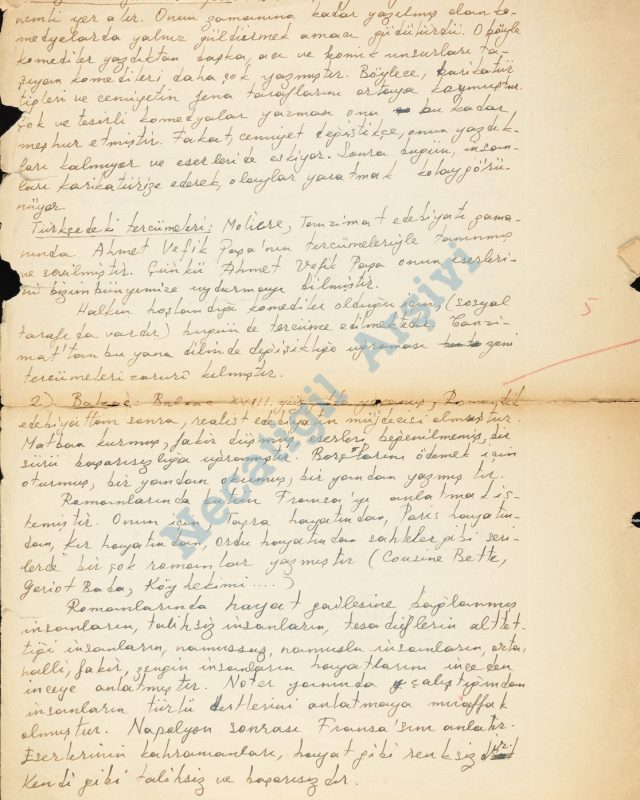 nemli yer alır. Onun zamanına kadar yazılmış olan ko-
medyalarda yalnız güldürmek amacı güdülürdü. O böyle
komediler yazdıktan başka, acı ve komik unsurları ta-
şıyan komedileri daha çok yazmıştır. Böylece, karikatür
tipleri ve cemiyetin fena taraflarını ortaya koymuştur.
Çok ve tesirli komedyalar yazması onu bu kadar
meşhur etmiştir. Fakat, cemiyet değiştikçe, onun yazdık-
ları kalmıyor ve eserleri de eskiyor. Sonra bugün, insan-
ları karikatürize ederek, olaylar yaratmak kolay görü-
nüyor.
Türkçedeki tercümeleri: Moliere, Tanzimat edebiyatı zama-
nında Ahmet Vefik Paşa'nın tercümeleriyle tanınmış
ve sevilmiştir. Çünkü Ahmet Vefik Paşa onun eserleri-
ni bizim bünyemize uydurmayı bilmiştir.
Halkın hoşlandığı komediler olduğu için, (sosyal
tarafı da vardır) bugün de tercüme edilmektedir. Tanzi-
mat'tan bu yana dilin de değişikliğe uğraması yeni
tercümeleri zarurî kılmıştır.
5
2) Balzac: Balzac XVIII. yaşamış, Romantik
edebiyattan sonra, realist edebiyatın müjdecisi olmuştur.
Matbaa kurmuş, fakir düşmüş, eserleri beğenilmemiş, bir
sürü başarısızlığa uğramıştır. Borçlarını ödemek için
oturmuş, bir yandan okumuş, bir yandan yazmıştır.
Romanlarında bütün Fransa'yı anlatmak is-
temiştir. Onun için Taşra hayatından, Paris hayatın-
dan, Kır hayatından, Ordu hayatından sahneler gibi seri-
lerde bir çok romanlar yazmıştır (Cousine Bette,
Goriot Baba, Köy hekimi....)
Romanlarında hayat gailesine bağlanmış
insanların, talihsiz insanların, tesadüflerin alt et-
tiği insanların, namussuz, namuslu insanların, orta,
halli, fakir, zengin insanların hayatlarını inceden
inceye anlatmıştır. Noter yanında çalıştığından
insanların türlü dertlerini anlatmaya muvaffak
olmuştur. Napolyon sonrası Fransa'sını anlatır.
Eserlerinin kahramanları, hayat gibi renksiz
Kendi gibi talihsiz ve başarısızdır.
Necatigil Arşivi